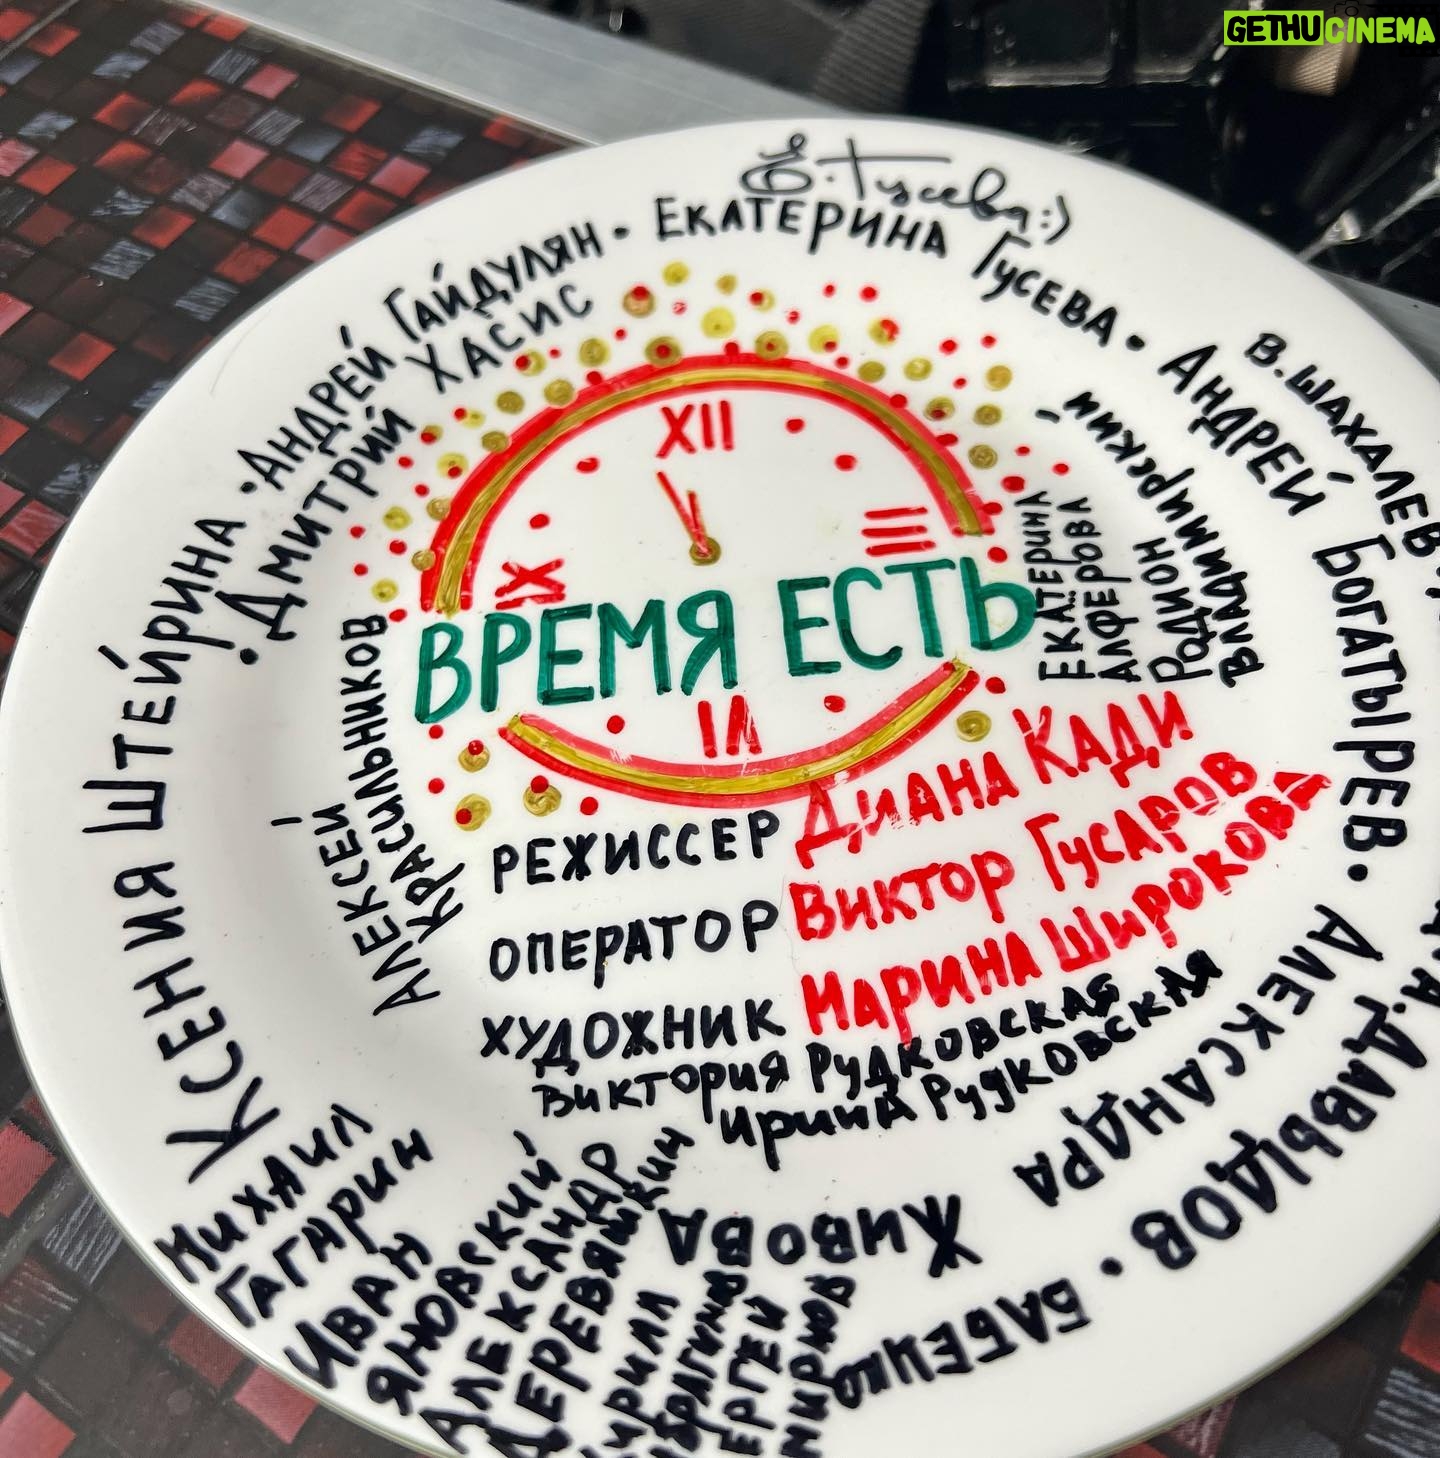 GETHUCINEMA
Е. Гусева:)
Екатерина Гусева •
Андрей Богатырев •
Александра Живова
Ксения Штейрина
• Андрей Гайдулян •
• Дмитрий Хасис
Алексей
Красильников
XII
III
IX
VI
ВРЕМЯ ЕСТЬ
Екатерина
Алферова
Родион
Владимиркий
В. Шахалев
Давыдов •
Бабенко
РЕЖИССЕР Диана Кади
ОПЕРАТОР Виктор Гусаров
ХУДОЖНИК Марина Широкова
Виктория Рудковская
Ирина Рудковская
Михаил
Гагарин
Иван
Яновский
Александр
Деревяшкин